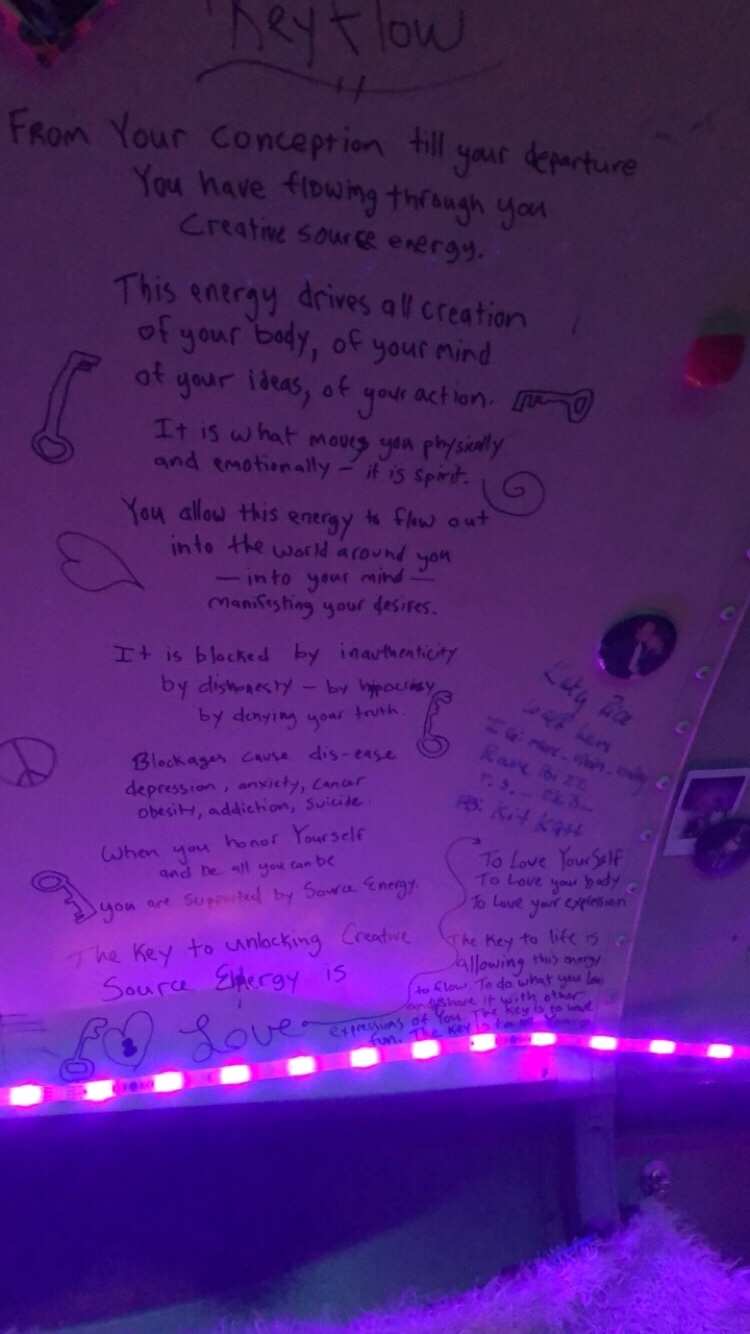 Key Flow
From Your conception till your departure
You have flowing through you
Creative source energy.
This energy drives all creation
of your body, of your mind
of your ideas, of your action.
It is what moves you physically
and emotionally - it is spirit.
You allow this energy to flow out
into the world around you
- into your mind -
manifesting your desires.
It is blocked by inauthenticity
by dishonesty - by hypocrisy
by denying your truth.
Blockages cause dis-ease
depression, anxiety, cancer
obesity, addiction, suicide.
When you honor Yourself
and be all you can be
you are supported by Source Energy.
The Key to unlocking Creative
Source Energy is
Love
To Love Yourself
To Love your body
To Love your expression
The Key to life is
allowing this energy
to flow. To do what you
share it with other
expressions of You. The Key is to have
fun. The Key is to
Katy
was here
IG:
Rave
Kit Katt